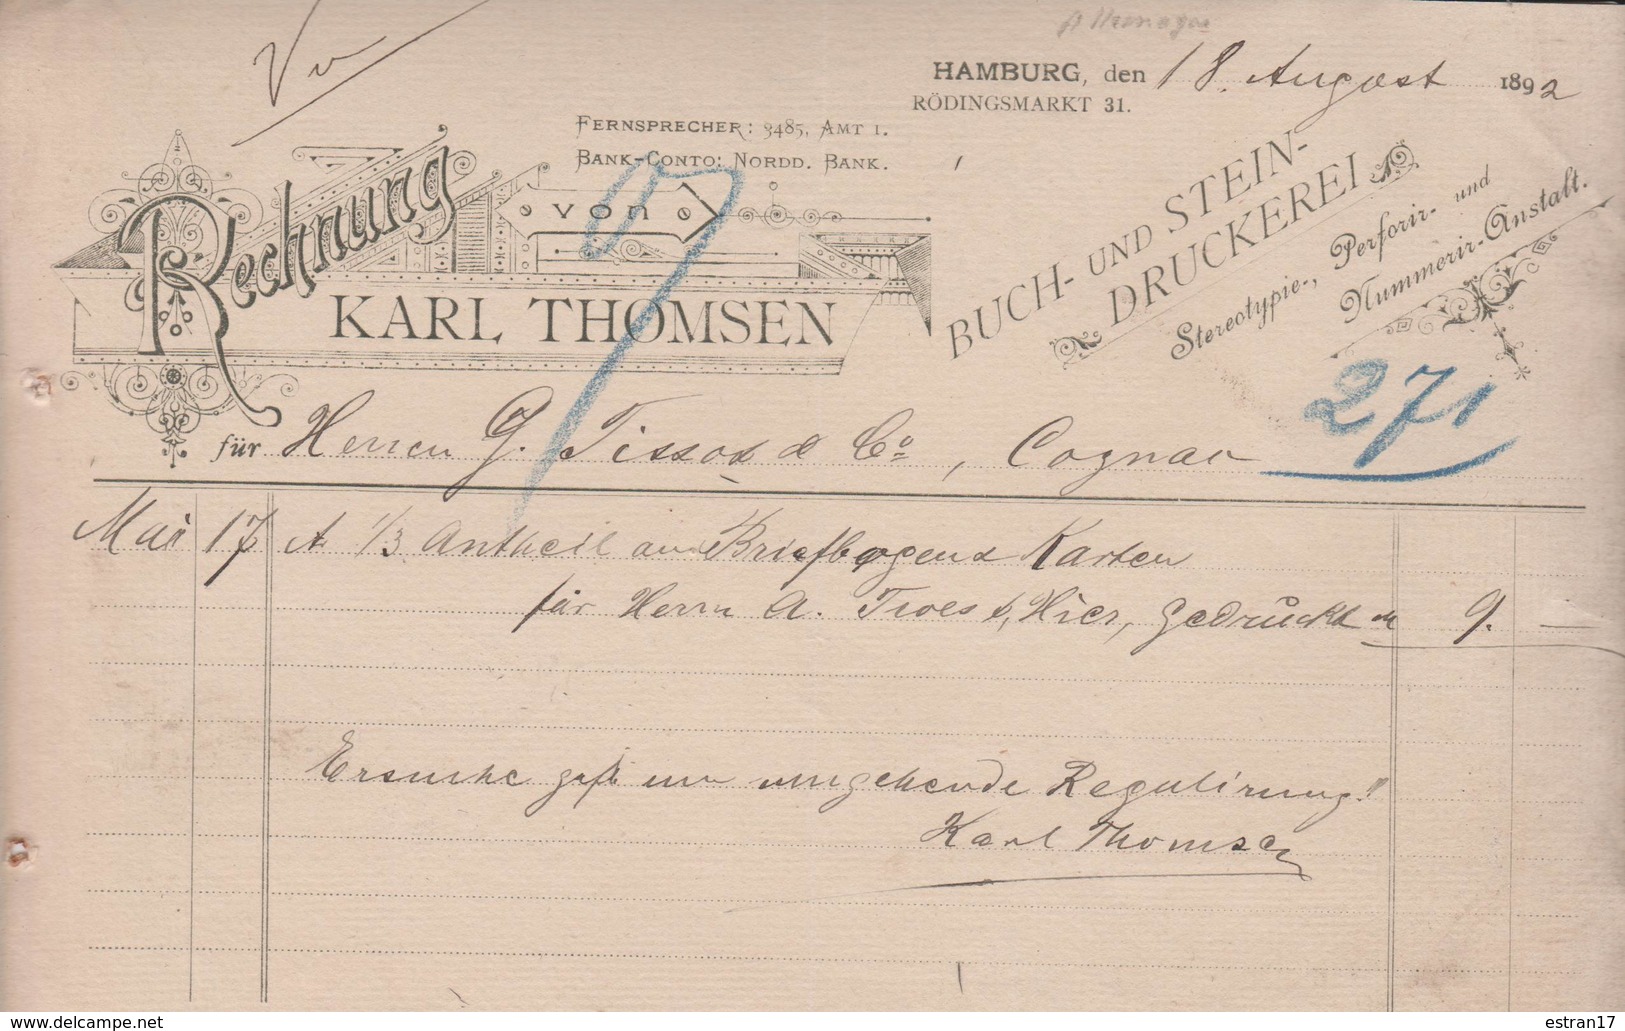 HAMBURG, den 18. August 1892
RÖDINGSMARKT 31.
FERNSPRECHER: 3485, AMT 1.
BANK-CONTO: NORDD. BANK.
Rechnung
von
KARL THOMSEN
BUCH- UND STEIN-
DRUCKEREI
Stereotypie-, Perforir- und
Nummerir-Anstalt.
271
für Herren G. Tissot & Co, Cognac
Mai 17 A 1/3 Antheil an Briefbogen & Karten
für Herrn A. Troest, Hier, gedruckt M 9. —
Ersuche gefl um umgehende Regulirung!!
Karl Thomsen
www.delcampe.net
estran17